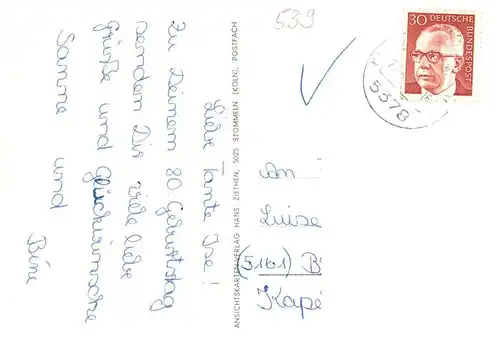 539
30
DEUTSCHE BUNDESPOST
5378
Liebe Tante Ise!
Zu Deinem 80. Geburtstag
senden Dir viele liebe
Grüße und Glückwünsche
Sanne und
Bine
ANSICHTSKARTEN-VERLAG HANS ZIETHEN, 5025 STOMMELN (KÖLN), POSTFACH
An
Luise
(5161) B
Kape